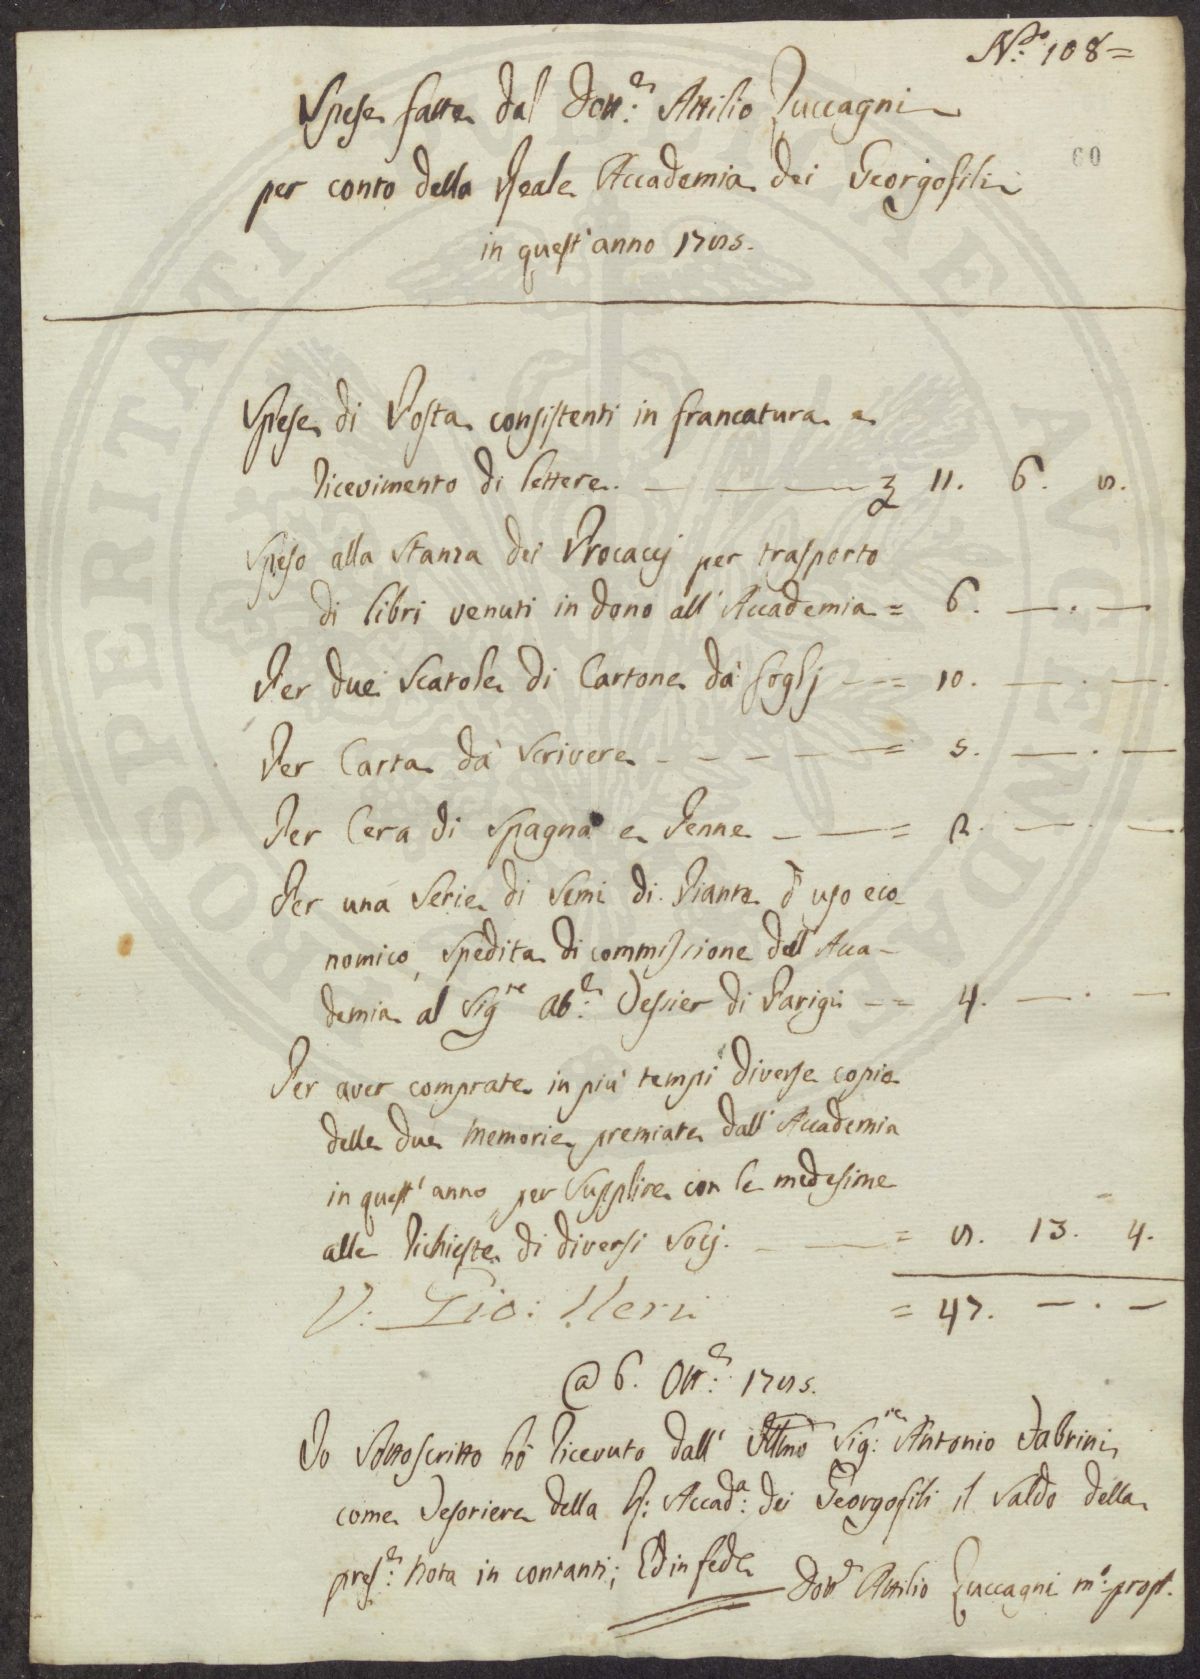 N.º 108=
60
Spese fatte dal Dott:re Attilio Zuccagni
per conto della Reale Accademia dei Georgofili
in quest'anno 1785.
Spese di Posta consistenti in francatura e
ricevimento di lettere. — — — £ 11. 6. 8.
Speso alla Stanza dei Procacj per trasporto
di libri venuti in dono all'Accademia = 6. — . —
Per due Scatole di Cartone da foglj — = 10. — . —
Per Carta da Scrivere - - - - — = 5. — . —
Per Cera di Spagna e Penne — — = 2. — . —
Per una Serie di Semi di Piante d'uso eco
nomico, Spedita di commissione dell'Acca-
demia al Sig.re Ab:e Tessier di Parigi — = 4. — . —
Per aver comprate in più tempi diverse copie
delle due Memorie premiate dall'Accademia
in quest'anno per Supplire con le medesime
alle richieste di diversi Socj. — — = 8. 13. 4.
V: Gio: Neri = 47. — . —
@ 6. Ott:re 1785.
Io Sottoscritto hò ricevuto dall'Illmo Sig:re Antonio Fabrini
come Tesoriere della R: Accad:a dei Georgofili il Saldo della
pres:e Nota in contanti; Ed in fede Dott.e Attilio Zuccagni m:o prop.
PROSPERITATI PUBLICAE AVGENDAE